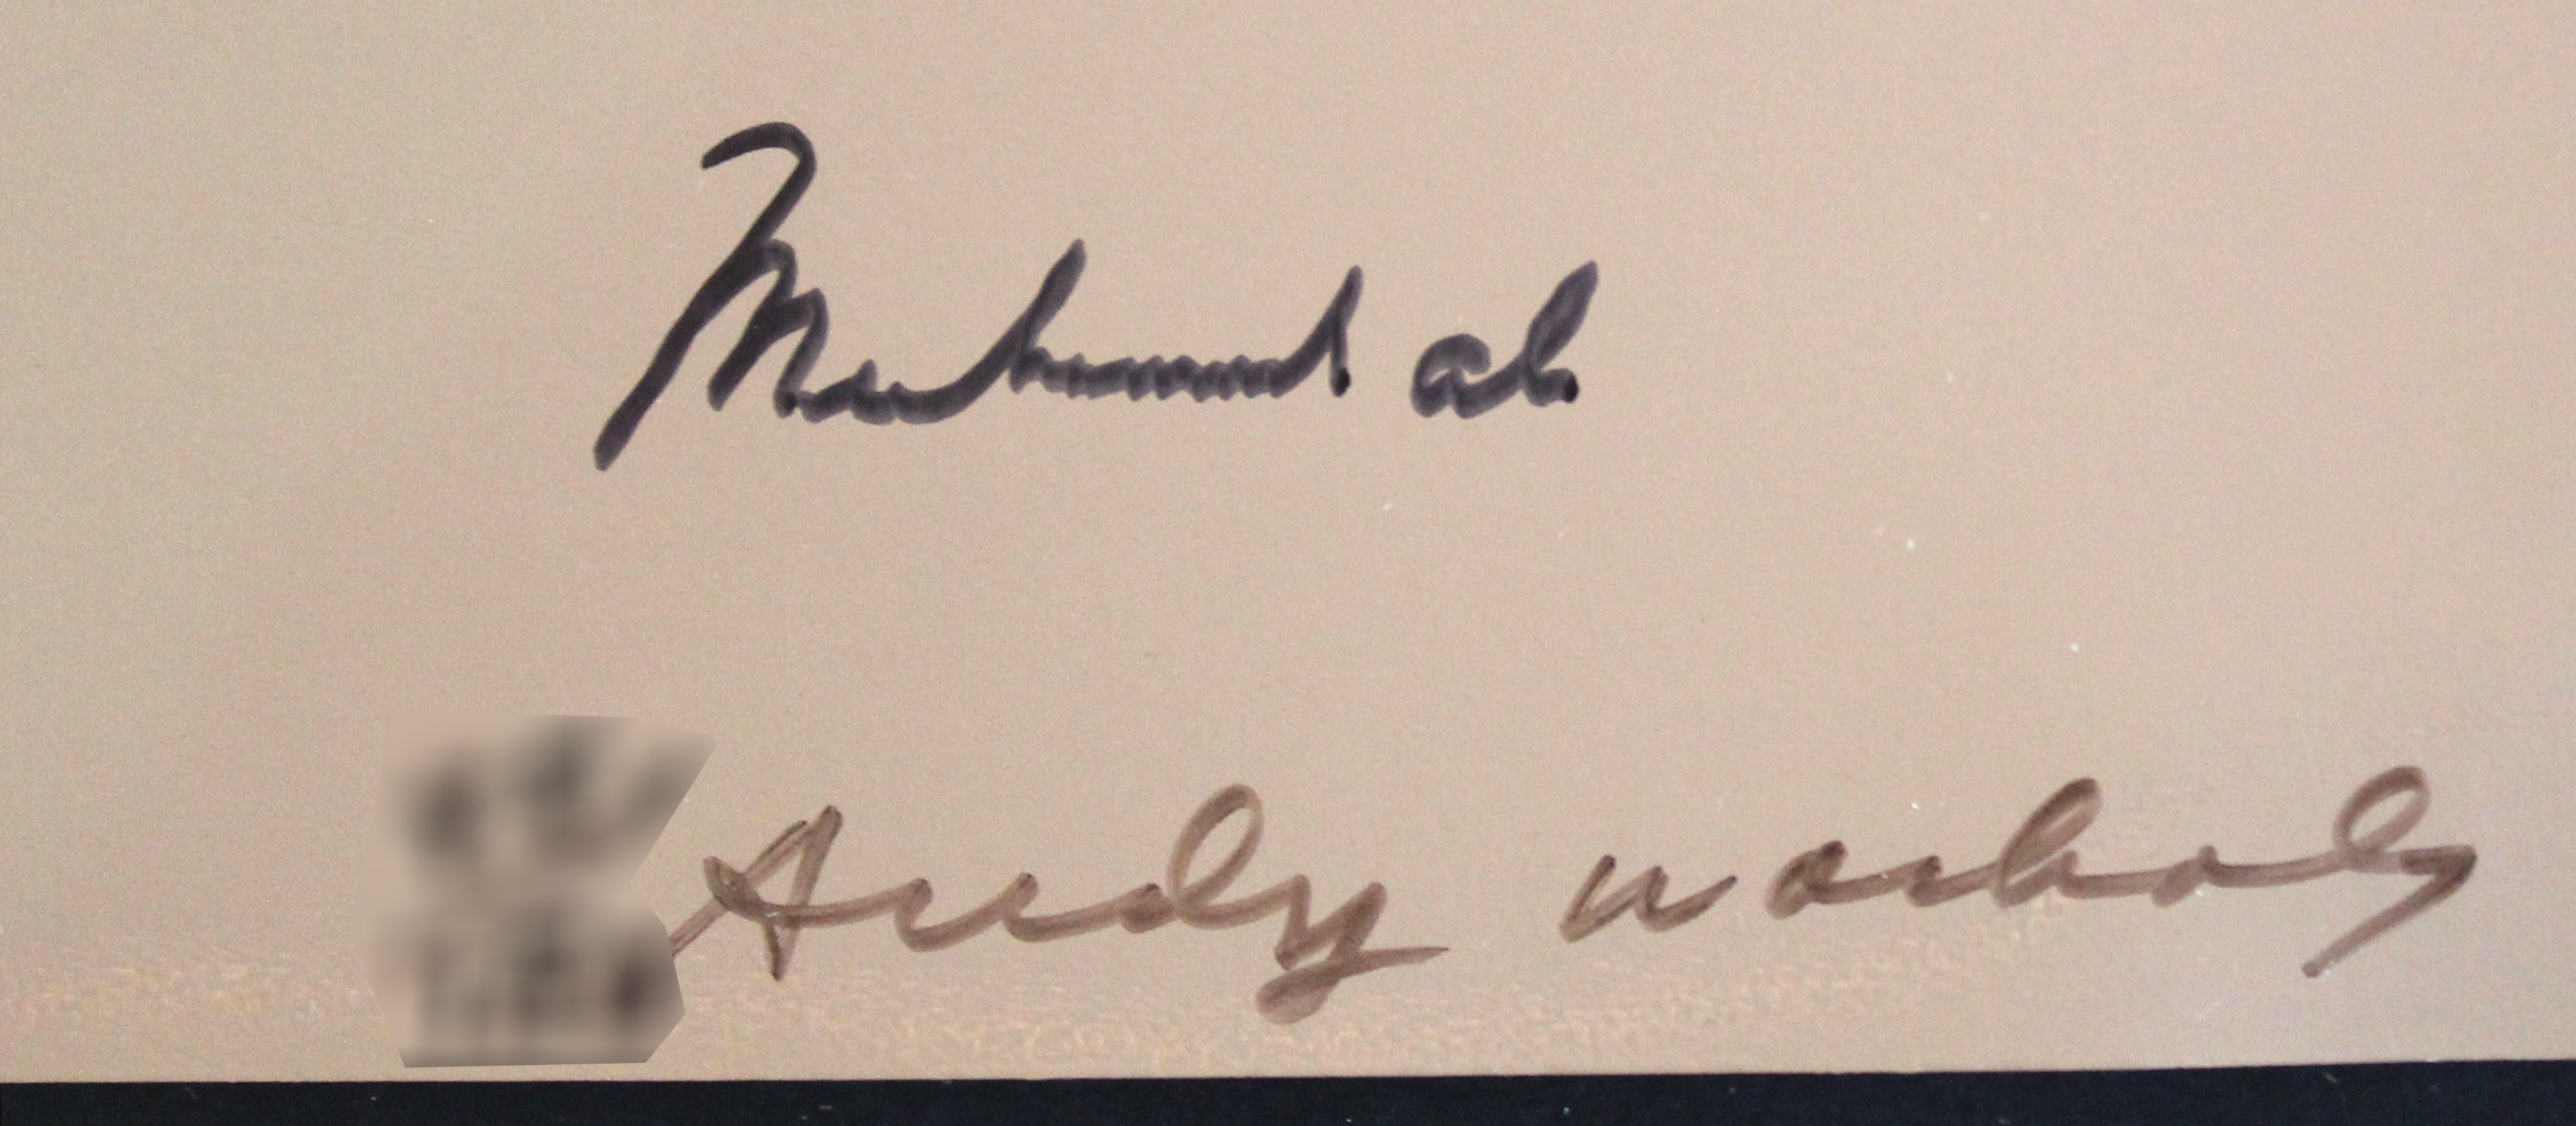 Muhammad Ali
Andy Warhol